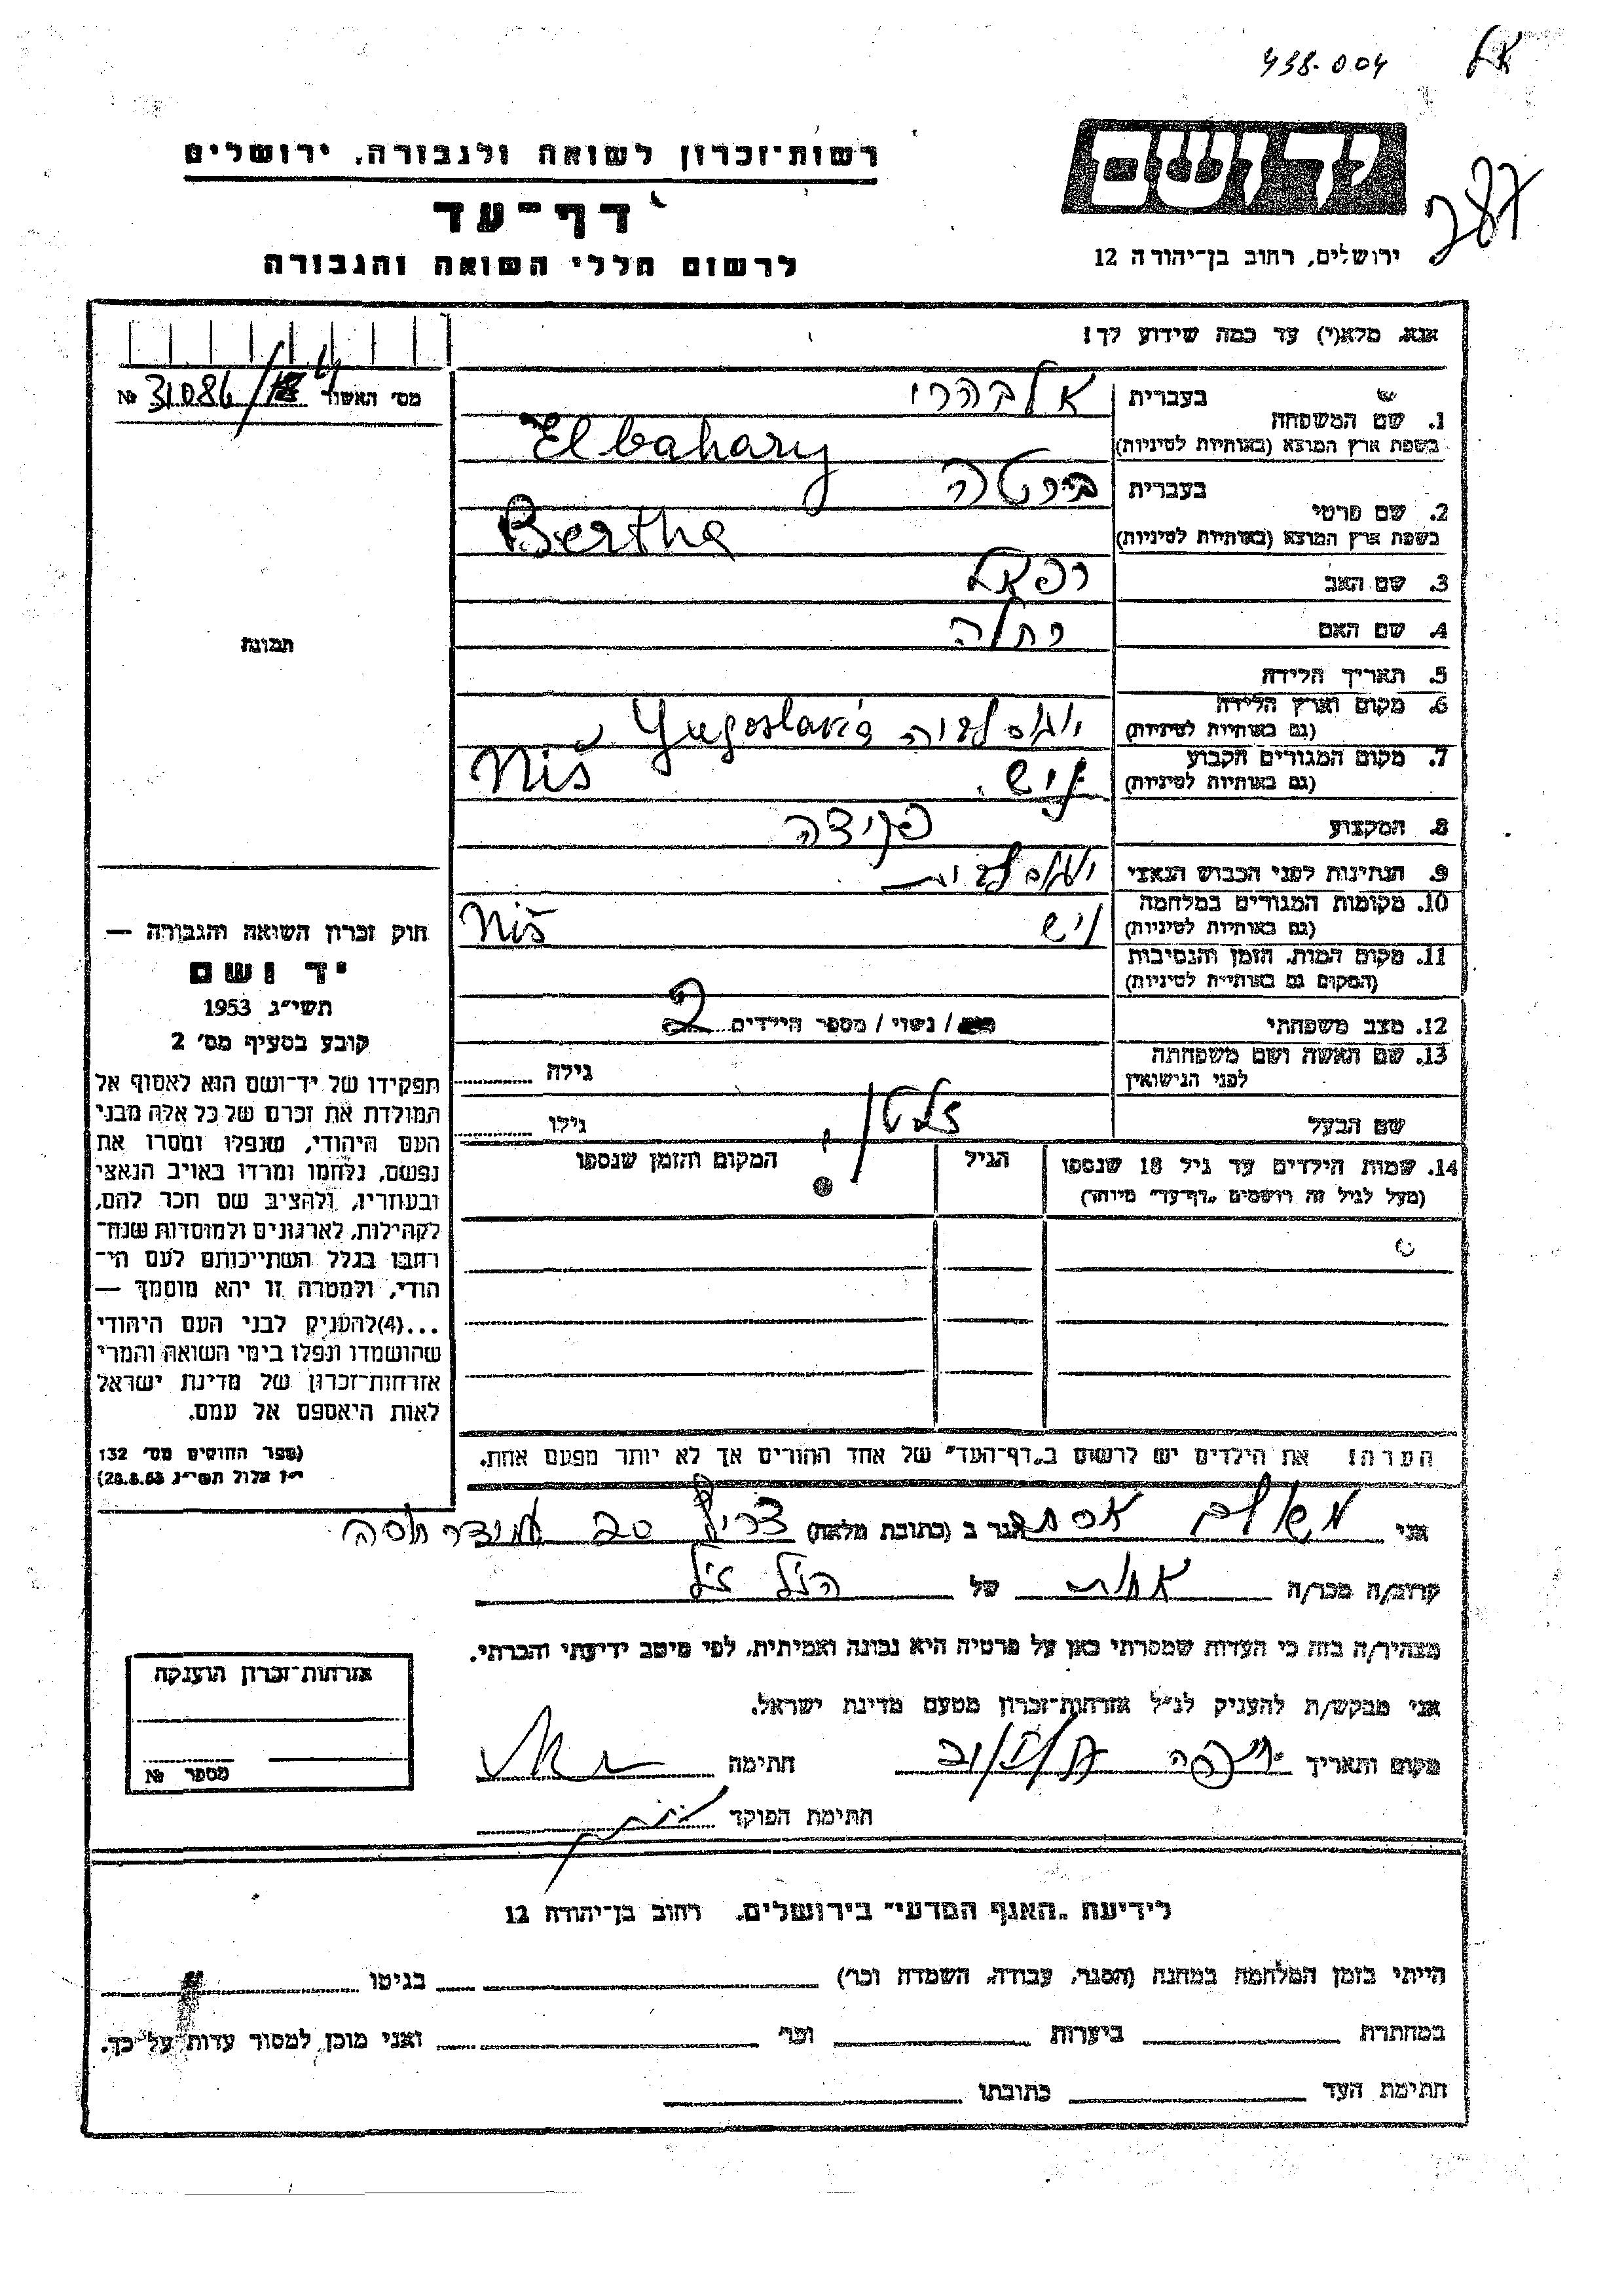 438.004
רשות־זכרון לשואה ולגבורה, ירושלים
יד ושם
287
דף־עד
ירושלים, רחוב בן־יהודה 12
לרשום חללי השואה והגבורה
אנא, מלא(י) עד כמה שידוע לך!
מס׳ האשור
№ 31086/
1. שם המשפחה
בעברית
אלבהרי
בשפת ארץ המוצא (באותיות לטיניות)
Elbahary
2. שם פרטי
בעברית
ברטה
בשפת ארץ המוצא (באותיות לטיניות)
Bertha
3. שם האב
רפאל
4. שם האם
רחלה
תמונה
5. תאריך הלידה
6. מקום וארץ הלידה
(גם באותיות לטיניות)
יוגוסלביה Yugoslavia
7. מקום המגורים הקבוע
(גם באותיות לטיניות)
ניש Niš
8. המקצוע
פקידה
9. הנתינות לפני הכבוש הנאצי
יוגוסלבית
10. מקומות המגורים במלחמה
(גם באותיות לטיניות)
ניש Niš
11. מקום המות, הזמן והנסיבות
(המקום גם באותיות לטיניות)
12. מצב משפחתי
/ נשוי / מספר הילדים 2
13. שם האשה ושם משפחתה
לפני הנישואין
גילה
שם הבעל
גילו
14. שמות הילדים עד גיל 18 שנספו
(מעל לגיל זה רושמים „דף־עד״ מיוחד)
הגיל
המקום והזמן שנספו
חוק זכרון השואה והגבורה —
יד ושם
תשי״ג 1953
קובע בסעיף מס׳ 2
תפקידו של יד־ושם הוא לאסוף אל
המולדת את זכרם של כל אלה מבני
העם היהודי, שנפלו ומסרו את
נפשם, נלחמו ומרדו באויב הנאצי
ובעוזריו, ולהציב שם וזכר להם,
לקהילות, לארגונים ולמוסדות שנח־
רבו בגלל השתייכותם לעם הי־
הודי, ולמטרה זו יהא מוסמך —
...(4)להעניק לבני העם היהודי
שהושמדו ונפלו בימי השואה והמרי
אזרחות־זכרון של מדינת ישראל
לאות היאספם אל עמם.
(ספר החוקים מס׳ 132
י״ז אלול תשי״ג 28.8.53)
הערה: את הילדים יש לרשום ב„דף־העד״ של אחד ההורים אך לא יותר מפעם אחת.
אני משולם אסתר הגר ב (כתובת מלאה) צריף 20 עמידר
קרוב/ה מכר/ה אחות של הנ״ל
מצהיר/ה בזה כי העדות שמסרתי כאן על פרטיה היא נכונה ואמיתית, לפי מיטב ידיעתי והכרתי.
אני מבקש/ת להעניק לנ״ל אזרחות־זכרון מטעם מדינת ישראל.
מקום ותאריך
חתימה
חתימת הפוקד
אזרחות־זכרון הוענקה
מספר №
לידיעת „האגף המדעי״ בירושלים, רחוב בן־יהודה 12
הייתי בזמן המלחמה במחנה (הסגר, עבודה, השמדה וכו׳) בגיטו
במחתרת ביערות וכו׳ ואני מוכן למסור עדות על־כך.
חתימת העד כתובתו